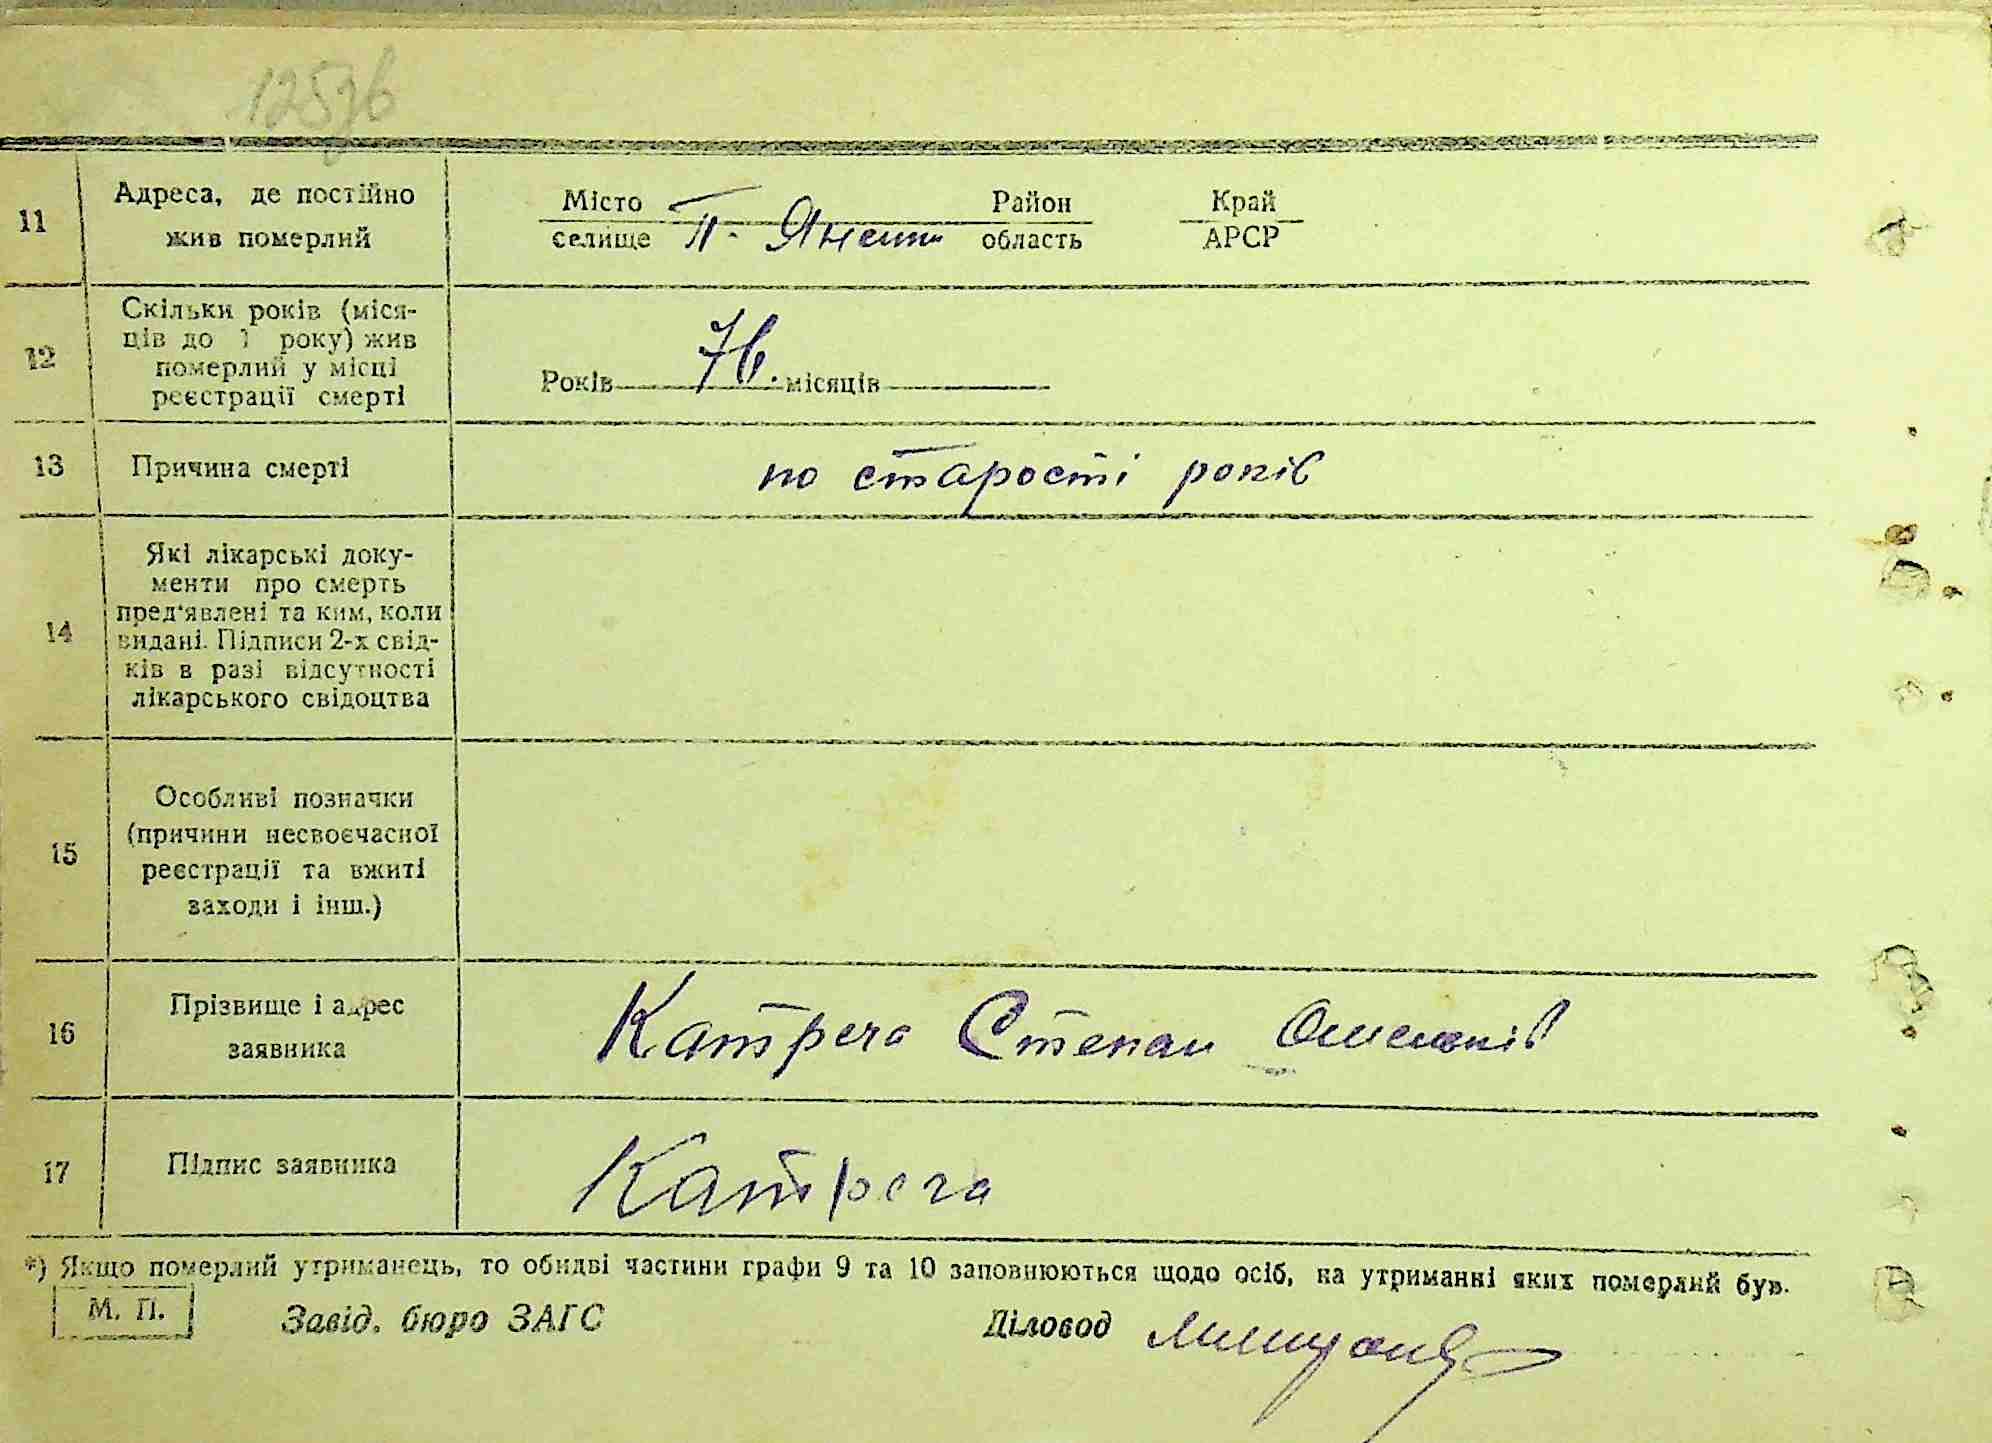 125зв
11
Адреса, де постійно
жив померлий
Місто
селище
П.
Район
область
Край
АРСР
12
Скільки років (міся-
ців до 1 року) жив
померлий у місці
реєстрації смерті
Років 76. місяців
13
Причина смерті
по старості років
14
Які лікарські доку-
менти про смерть
пред'явлені та ким, коли
видані. Підписи 2-х свід-
ків в разі відсутності
лікарського свідоцтва
15
Особливі позначки
(причини несвоєчасної
реєстрації та вжиті
заходи і інш.)
16
Прізвище і адрес
заявника
Катреча Степан
17
Підпис заявника
Катреча
*) Якщо померлий утриманець, то обидві частини графи 9 та 10 заповнюються щодо осіб, на утриманні яких померлий був.
М. П.
Завід. бюро ЗАГС
Діловод